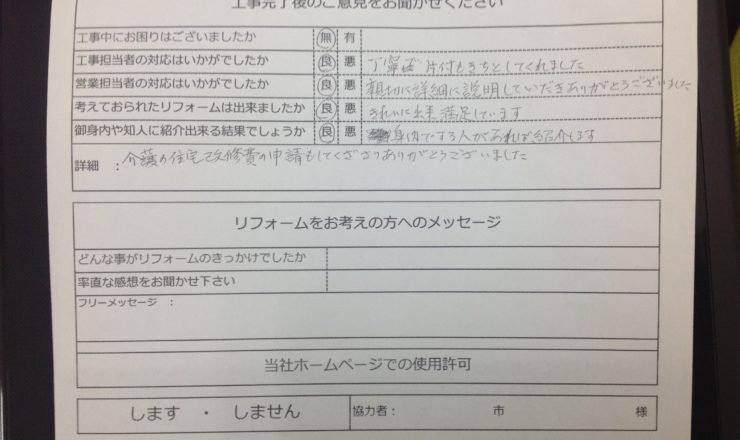 工事完了後のご意見をお聞かせください
工事中にお困りはございましたか 無 有
工事担当者の対応はいかがでしたか 良 悪 丁寧で片付もきちとしてくれました
営業担当者の対応はいかがでしたか 良 悪 親切に詳細に説明していただきありがとうございました
考えておられたリフォームは出来ましたか 良 悪 きれいに出来満足しています
御身内や知人に紹介出来る結果でしょうか 良 悪 身内でする人があれば紹介します
詳細 : 介護の住宅改修費の申請もしてくださりありがとうございました
リフォームをお考えの方へのメッセージ
どんな事がリフォームのきっかけでしたか
率直な感想をお聞かせ下さい
フリーメッセージ :
当社ホームページでの使用許可
します ・ しません 協力者: 市 様